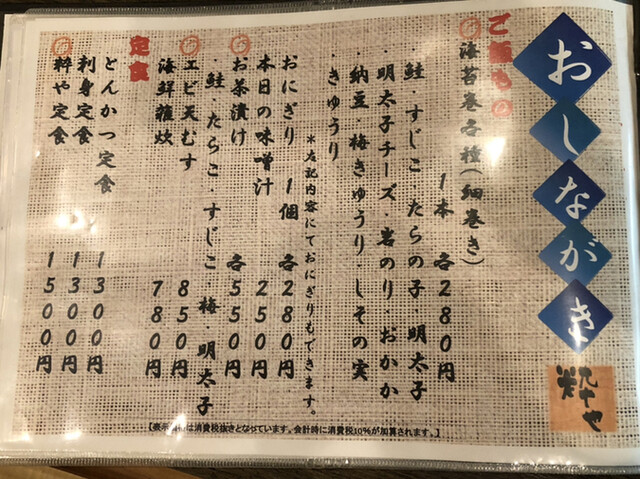 おしながき
粋や
ご飯もの
海苔巻各種(細巻き)
1本 各280円
・鮭・すじこ・たらの子・明太子
・明太子チーズ・岩のり・おかか
・納豆・梅きゅうり・しその実
・きゅうり
*左記内容にておにぎりもできます。
おにぎり 1個 各280円
本日の味噌汁 250円
お茶漬け 各550円
・鮭・たらこ・すじこ・梅・明太子
エビ天むす 850円
海鮮雑炊 780円
定食
とんかつ定食 1300円
刺身定食 1300円
粋や定食 1500円
は消費税抜きとなっています。会計時に消費税10%が加算されます。】